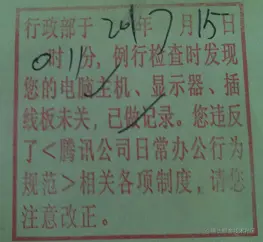 行政部于2017年7月15日
0时11分,例行检查时发现
您的电脑主机、显示器、插
线板未关,已做记录。您违反
了<腾讯公司日常办公行为
规范>相关各项制度,请您
注意改正。